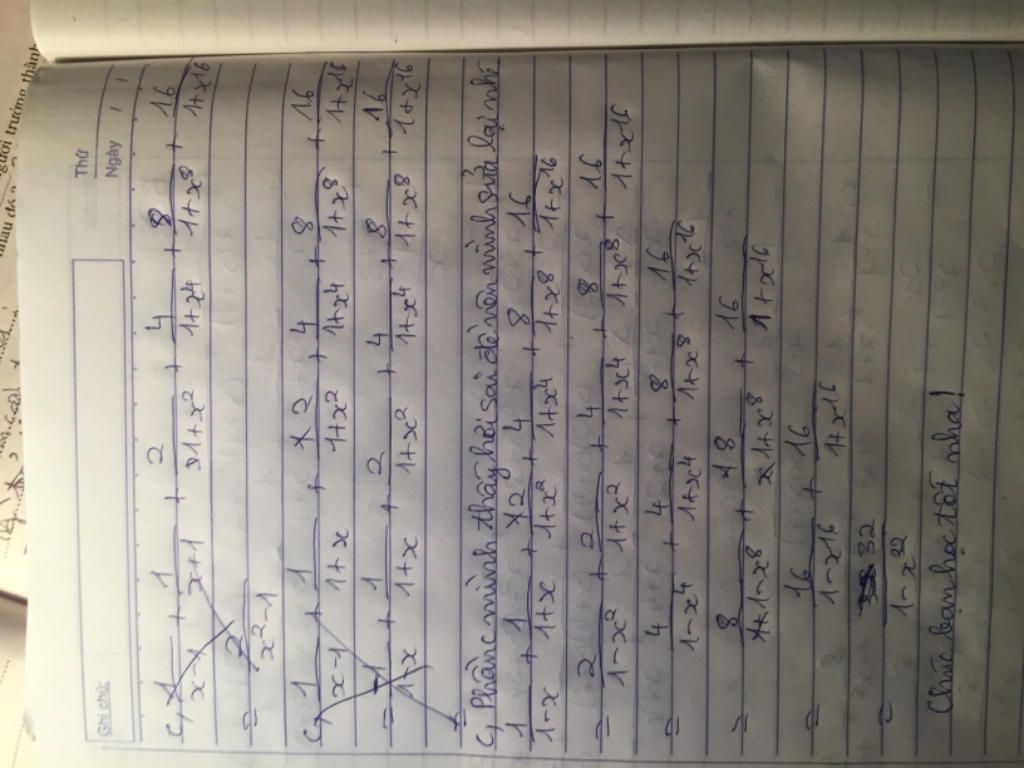 Thứ
Ngày / /
Ghi chú:
c, 1/(x-1) + 1/(x+1) + 2/(1+x²) + 4/(1+x⁴) + 8/(1+x⁸) + 16/(1+x¹⁶)
= 2/(x²-1)
c, 1/(x-1) + 1/(1+x) + 2/(1+x²) + 4/(1+x⁴) + 8/(1+x⁸) + 16/(1+x¹⁶)
= + 1/(1+x) + 2/(1+x²) + 4/(1+x⁴) + 8/(1+x⁸) + 16/(1+x¹⁶)
=
c, Phần c mình thấy hơi sai đề nên mình sửa lại nhé
1/(1-x) + 1/(1+x) + 2/(1+x²) + 4/(1+x⁴) + 8/(1+x⁸) + 16/(1+x¹⁶)
= 2/(1-x²) + 2/(1+x²) + 4/(1+x⁴) + 8/(1+x⁸) + 16/(1+x¹⁶)
= 4/(1-x⁴) + 4/(1+x⁴) + 8/(1+x⁸) + 16/(1+x¹⁶)
= 8/(1-x⁸) + 8/(1+x⁸) + 16/(1+x¹⁶)
= 16/(1-x¹⁶) + 16/(1+x¹⁶)
= 32/(1-x³²)
Chúc bạn học tốt nha!